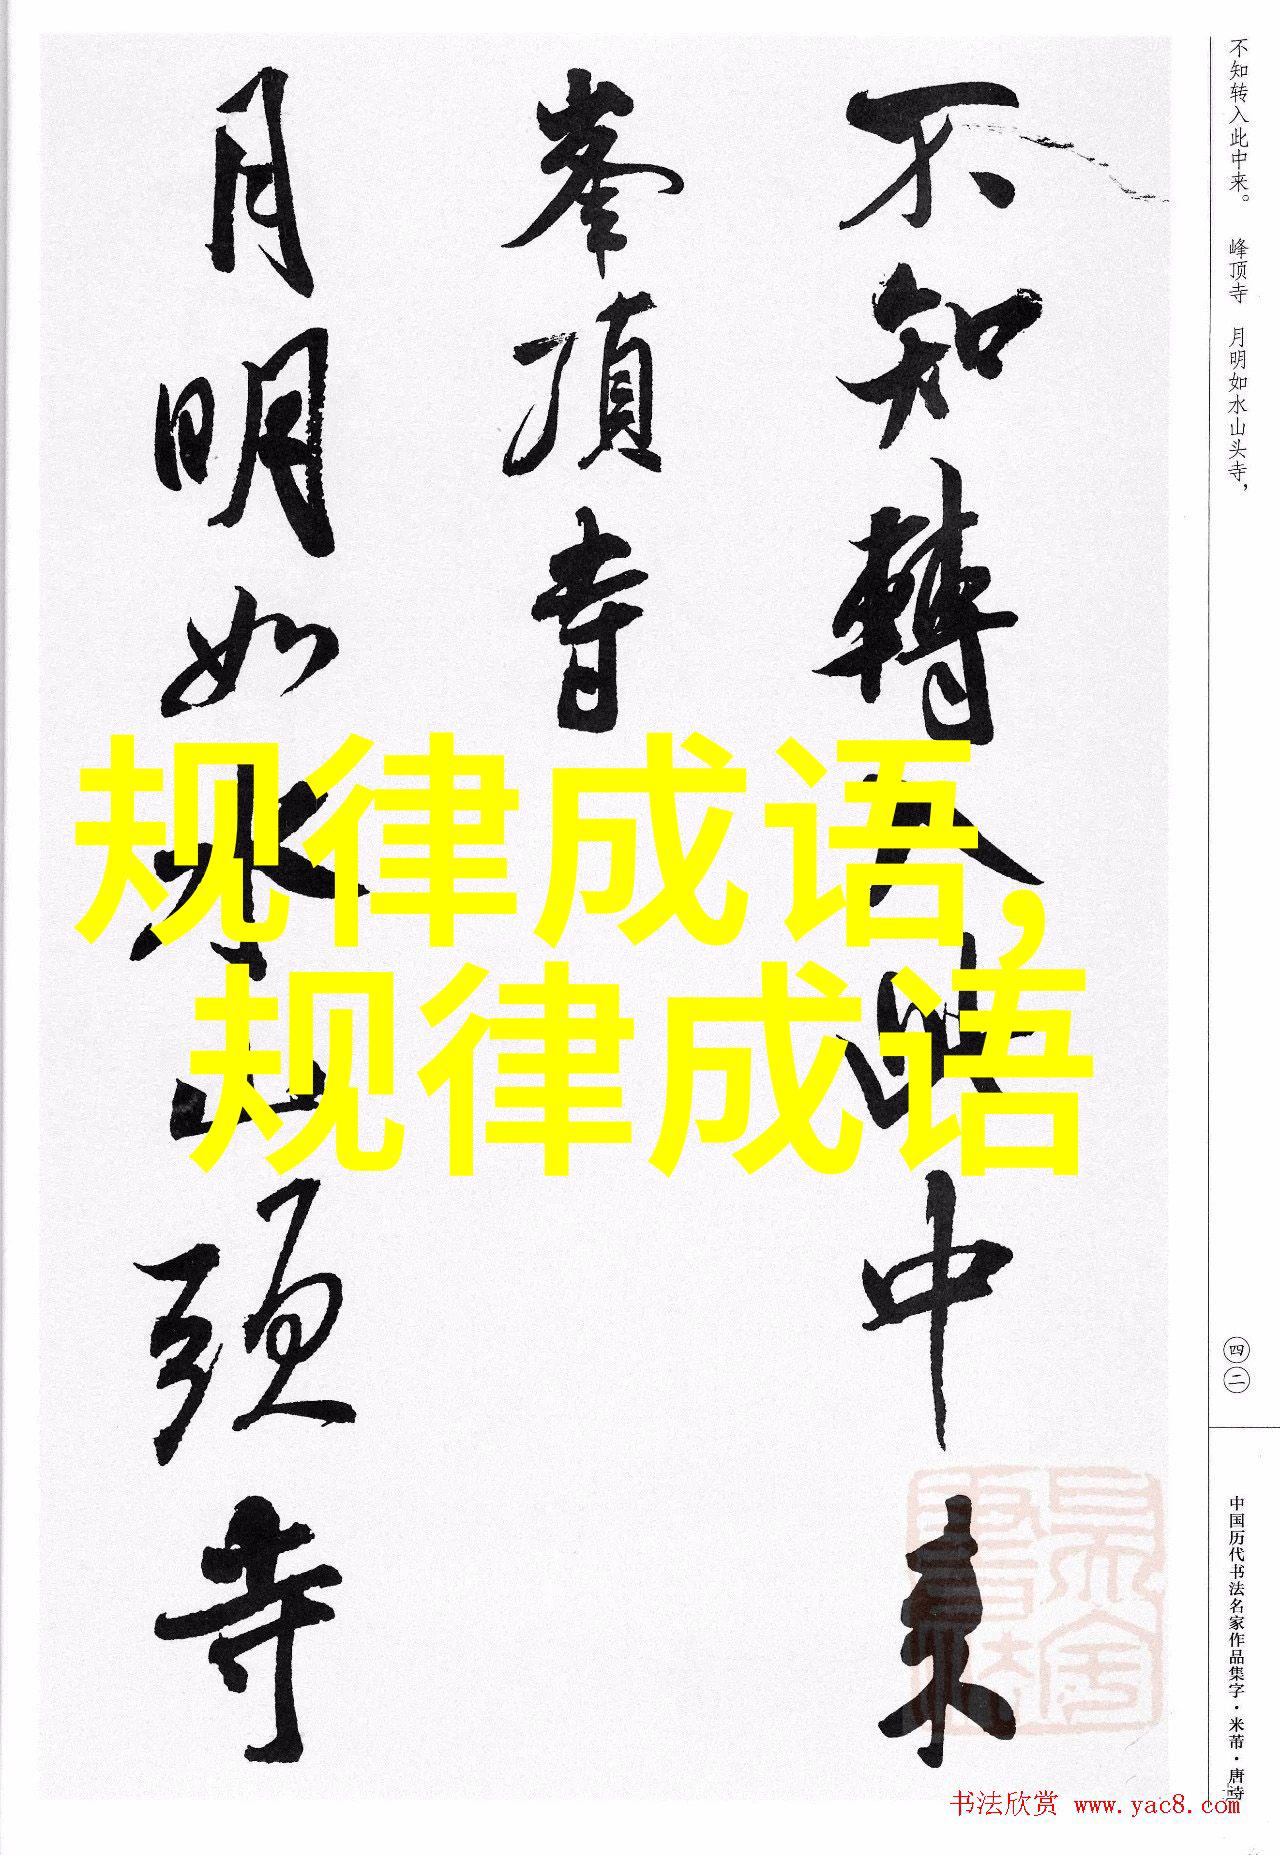 不知轉入此中来
峯頂寺
月明如水山頭寺
规律成语，
规律成语
不知转入此中来。 峰顶寺 月明如水山头寺，
四二
中国历代书法名家作品集字·米芾·唐诗
书法欣赏 www.yac8.com